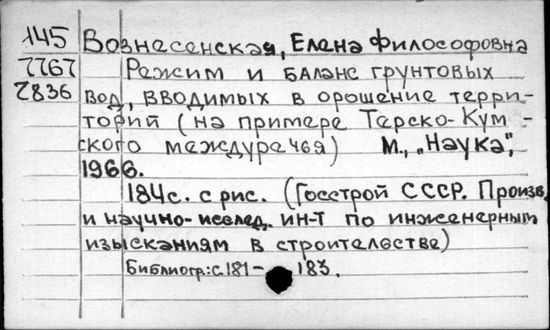 145 Вознесенская, Елена Философовна
7797 Режим и баланс грунтовых
2836 вод, вводимых в орошение терри-
торий (на примере Терско-Кум-
ского междуречья) М., „Наука",
1966.
184с. с рис. (Госстрой СССР. Произв.
и научно-исслед. ин-т по инженерным
изысканиям в строительстве)
Библиогр.: с. 181- 183.